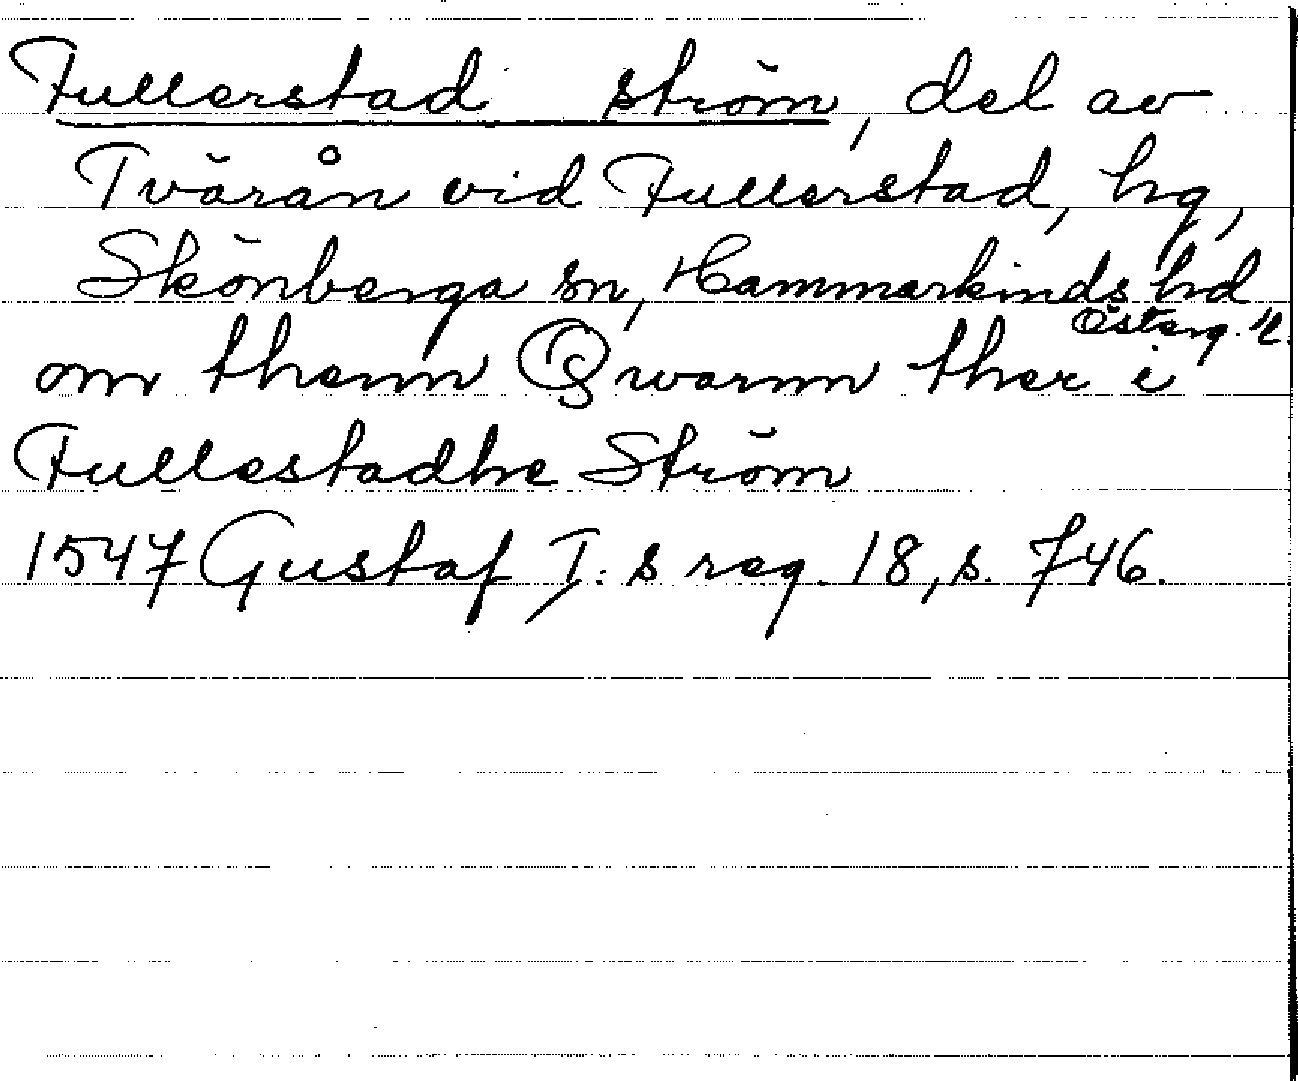 Fullerstad ström, del av
Tvärån vid Fullerstad, hg,
Skönberga sn, Hammarkinds hd
Österg. l.
om thenn Qwarnn ther i
Fullestadhe Ström
1547 Gustaf I:s reg. 18, s. 746.